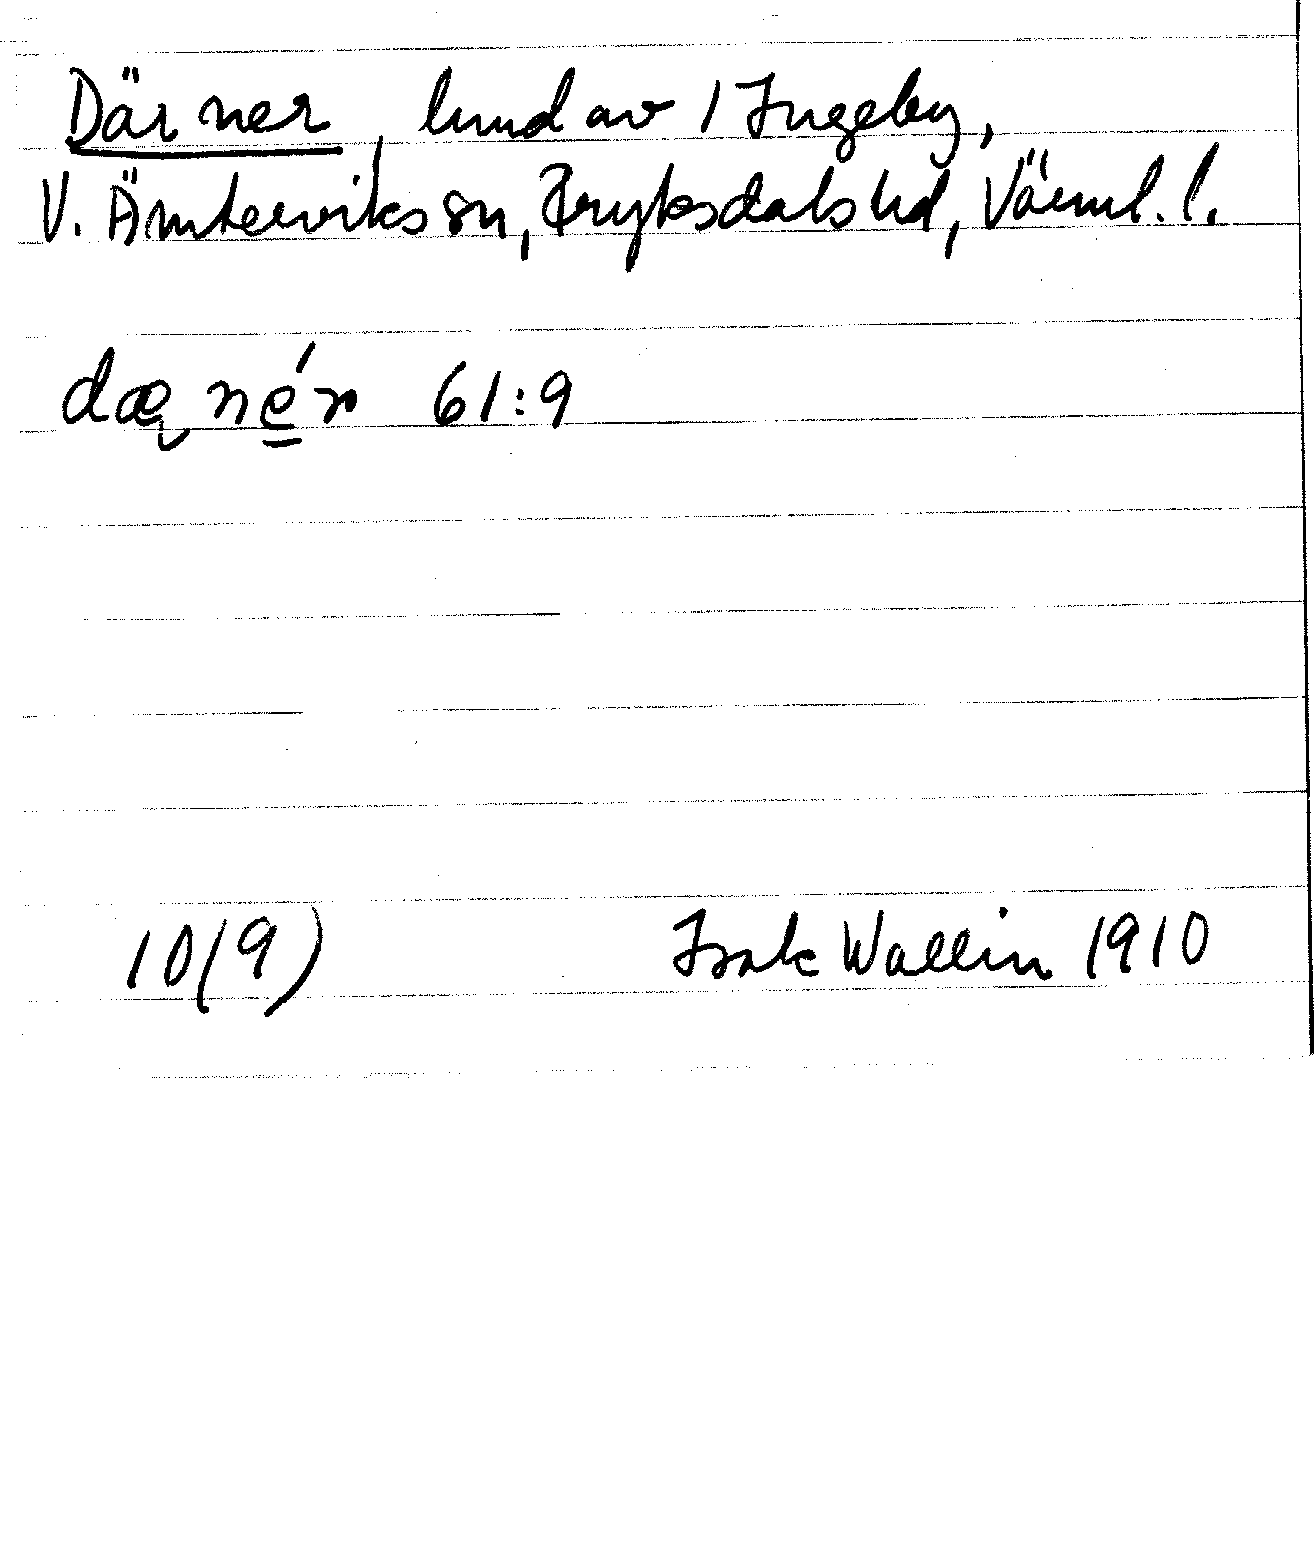 Där ner, lund av 1 Ingeby,
V. Ämterviks sn, Fryksdals hd, Värml. l.
dæ̨ né̱r 61:9
10(9) Isak Wallin 1910